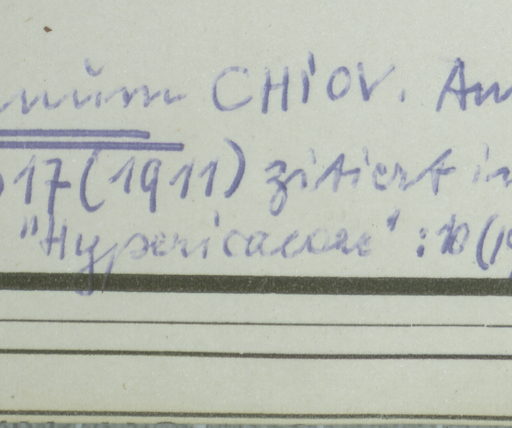 CHIOV. An
17 (1911) zitiert in
"Hypericaceae": 10 (19